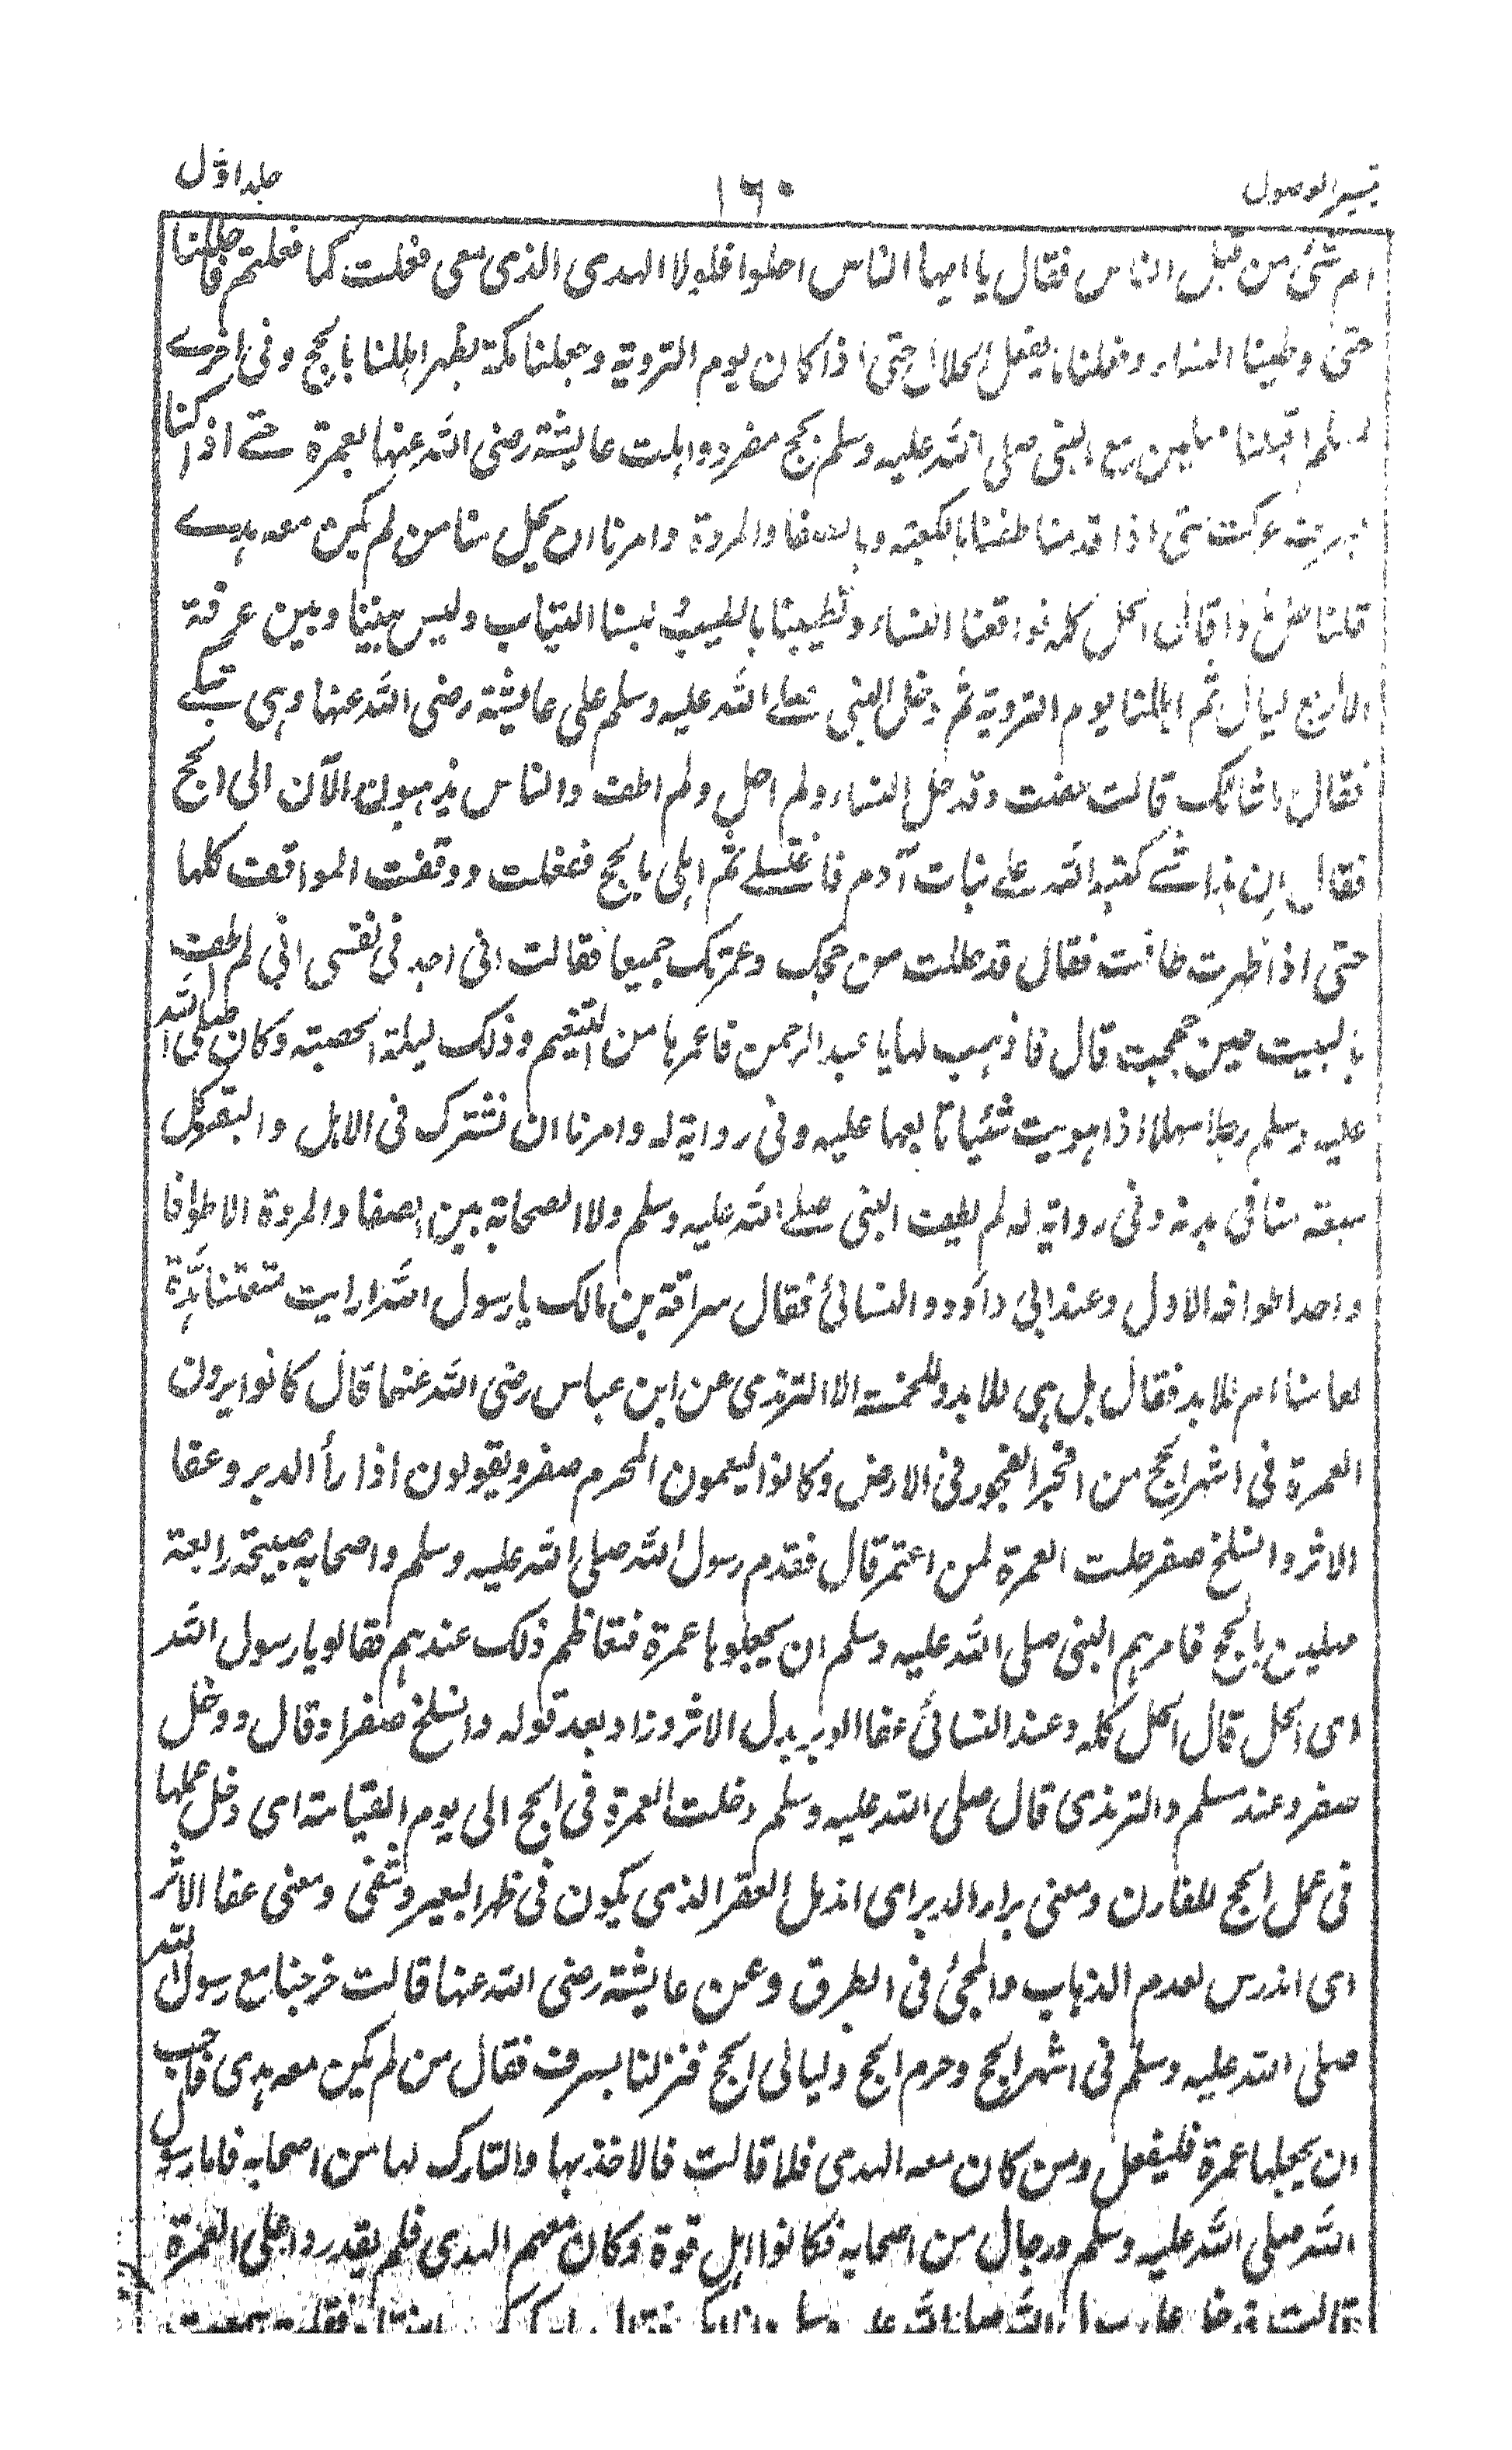 تيسير الوصول ١٦٠ جلد اوّل
ام شئ من قبل الناس فقال يا ايها الناس احلوا فلولا الهدى الذى معى فعلت كما فعلتم فاحللنا
حتى وطينا النساء وفعلنا ما يفعل الحلال حتى اذا كان يوم التروية وجعلنا مكة بظهر اهللنا بالحج وفى اخرے
لمسلم اقبلنا مهلين مع النبى صلى الله عليه وسلم بحج مفرد واہلت عايشة رضى الله عنها بعمرة حتے اذا كنا
بسرف عركت حتى اذا قدمنا طفنا بالكعبته وبالصفا والمروة وامرنا ان يحل منا من لم يكن معه ہدے
قلنا حل ماذا قال الحل كله فواقعنا النساء وتطيبنا بالطيب ولبسنا الثياب وليس بيننا وبين عرفة
الا اربع ليال ثم اهللنا يوم التروية ثم دخل النبى صلے الله عليه وسلم على عايشة رضى الله عنها وہى تبكے
فقال ما شانك قالت حضت وقد حل الناس ولم احل ولم اطف والناس يذہبون الآن الى الحج
فقال ان ہذا شے كتبه الله علے بنات آدم فاغتسلے ثم اہلى بالحج ففعلت ووقفت المواقف كلها
حتى اذا طهرت طافت فقال قد حللت من حجك وعمرتك جميعا فقالت انى اجد فى نفسى انى لم اطف
بالبيت حين حججت قال فاذہب لها يا عبد الرحمن فاعمرها من التنعيم وذلك ليلة الحصبته وكان صلى الله
عليه وسلم رجلا سهلا اذا ہويت شئيا تابعها عليه وفى رواية له وامرنا ان نشترك فى الابل والبقر كل
سبعته منا فى بدنه وفى رواية له لم يطف النبى صلے الله عليه وسلم ولا الصحابة بين الصفا والمروة الا طوافا
واحدا طوافه الاول وعند ابى داؤد والنسائى فقال سراقة بن مالك يا رسول الله ارايت متعتنا ہذہ
لعامنا ام للابد فقال بل ہى للابد وللخمسة الا الترمذى عن ابن عباس رضى الله عنهما قال كانوا يرون
العمرة فى اشهر الحج من افجر الفجور فى الارض وكانوا ليسمون المحرم صفر ويقولون اذا برأ الدبر وعفا
الاثر وانسلخ صفر حلت العمرة لمن اعتمر قال فقدم رسول الله صلى الله عليه وسلم واصحابه صبيحة رابعة
مهلين بالحج فامرہم النبى صلى الله عليه وسلم ان يجعلوها عمرة فتعاظم ذلك عندہم فقالو يا رسول الله
اى الحل قال الحل كله وعند النسائى عفا الوبر بدل الاثر وزاد بعد قوله وانسلخ صفرا وقال ودخل
صفر وعند مسلم والترمذى قال صلى الله عليه وسلم دخلت العمرة فى الحج الى يوم القيامة اى دخل عملها
فى عمل الحج للقارن ومعنى برا الدبر اى اندمل العقر الذى يكون فى ظهر البعير وشفى ومعنى عفا الاثر
اى اندرس لعدم الذہاب والمجئ فى الطرق وعن عايشة رضى الله عنها قالت خرجنا مع رسول الله
صلى الله عليه وسلم فى اشهر الحج وحرم الحج وليالى الحج فنزلنا بسرف فقال من لم يكن معه ہدى فاحب
ان يجعلها عمرة فليفعل ومن كان معه الهدى فلا قالت فالاخذ بها والتارك لها من اصحابه فاما رسول
الله صلى الله عليه وسلم ورجال من اصحابه فكانوا اہل قوة وكان معهم الهدى فلم يقدروا على العمرة